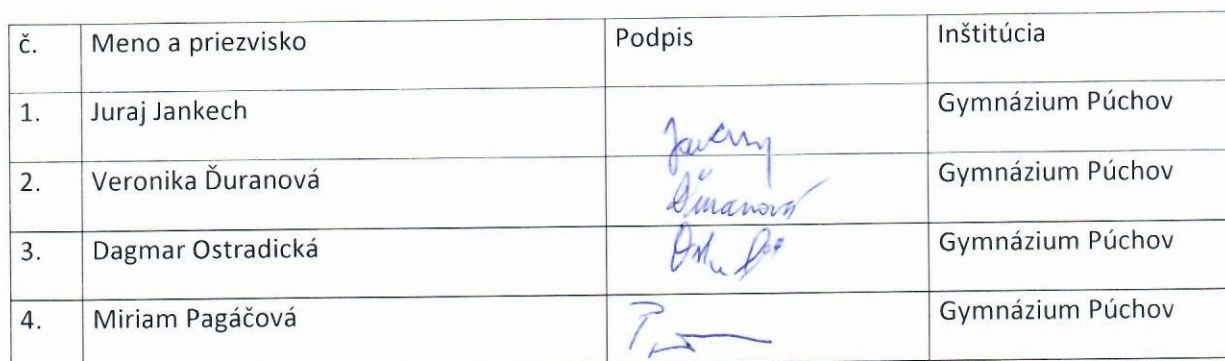 č. Meno a priezvisko Podpis Inštitúcia
1. Juraj Jankech Gymnázium Púchov
2. Veronika Ďuranová Ďuranová Gymnázium Púchov
3. Dagmar Ostradická Gymnázium Púchov
4. Miriam Pagáčová Gymnázium Púchov